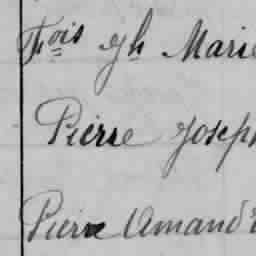 Fois Jh Marie
Pierre Joseph
Pierre Amand